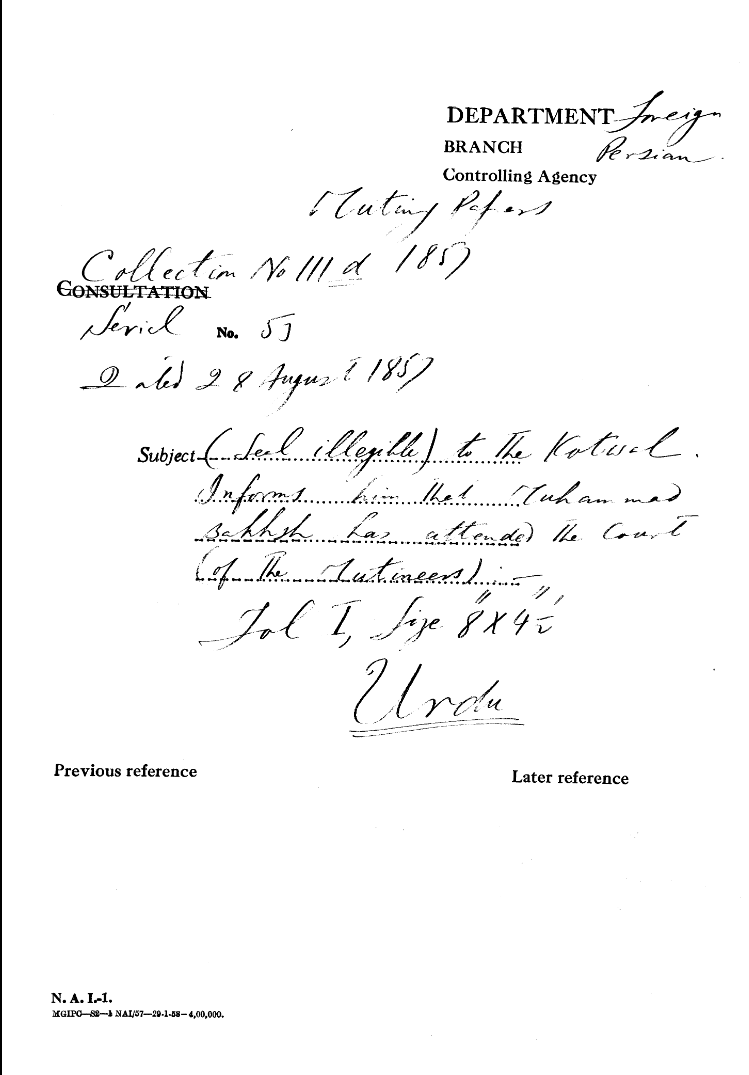 DEPARTMENT Foreign
BRANCH Persian
Controlling Agency
Mutiny Papers
Collection No III d 1857
CONSULTATION
Serial No.
Dated 28 August 1857
Subject (Seal illegible) to the Kotwal.
Informs him that Muhammad
Bakhsh has attended the Court
(of the Mutineers) :—
Fol I, Size 8" X 4½"
Urdu
Previous reference
Later reference
N. A. I.-1.
MGIPC—S2—1 NAI/57—29-1-58—4,00,000.